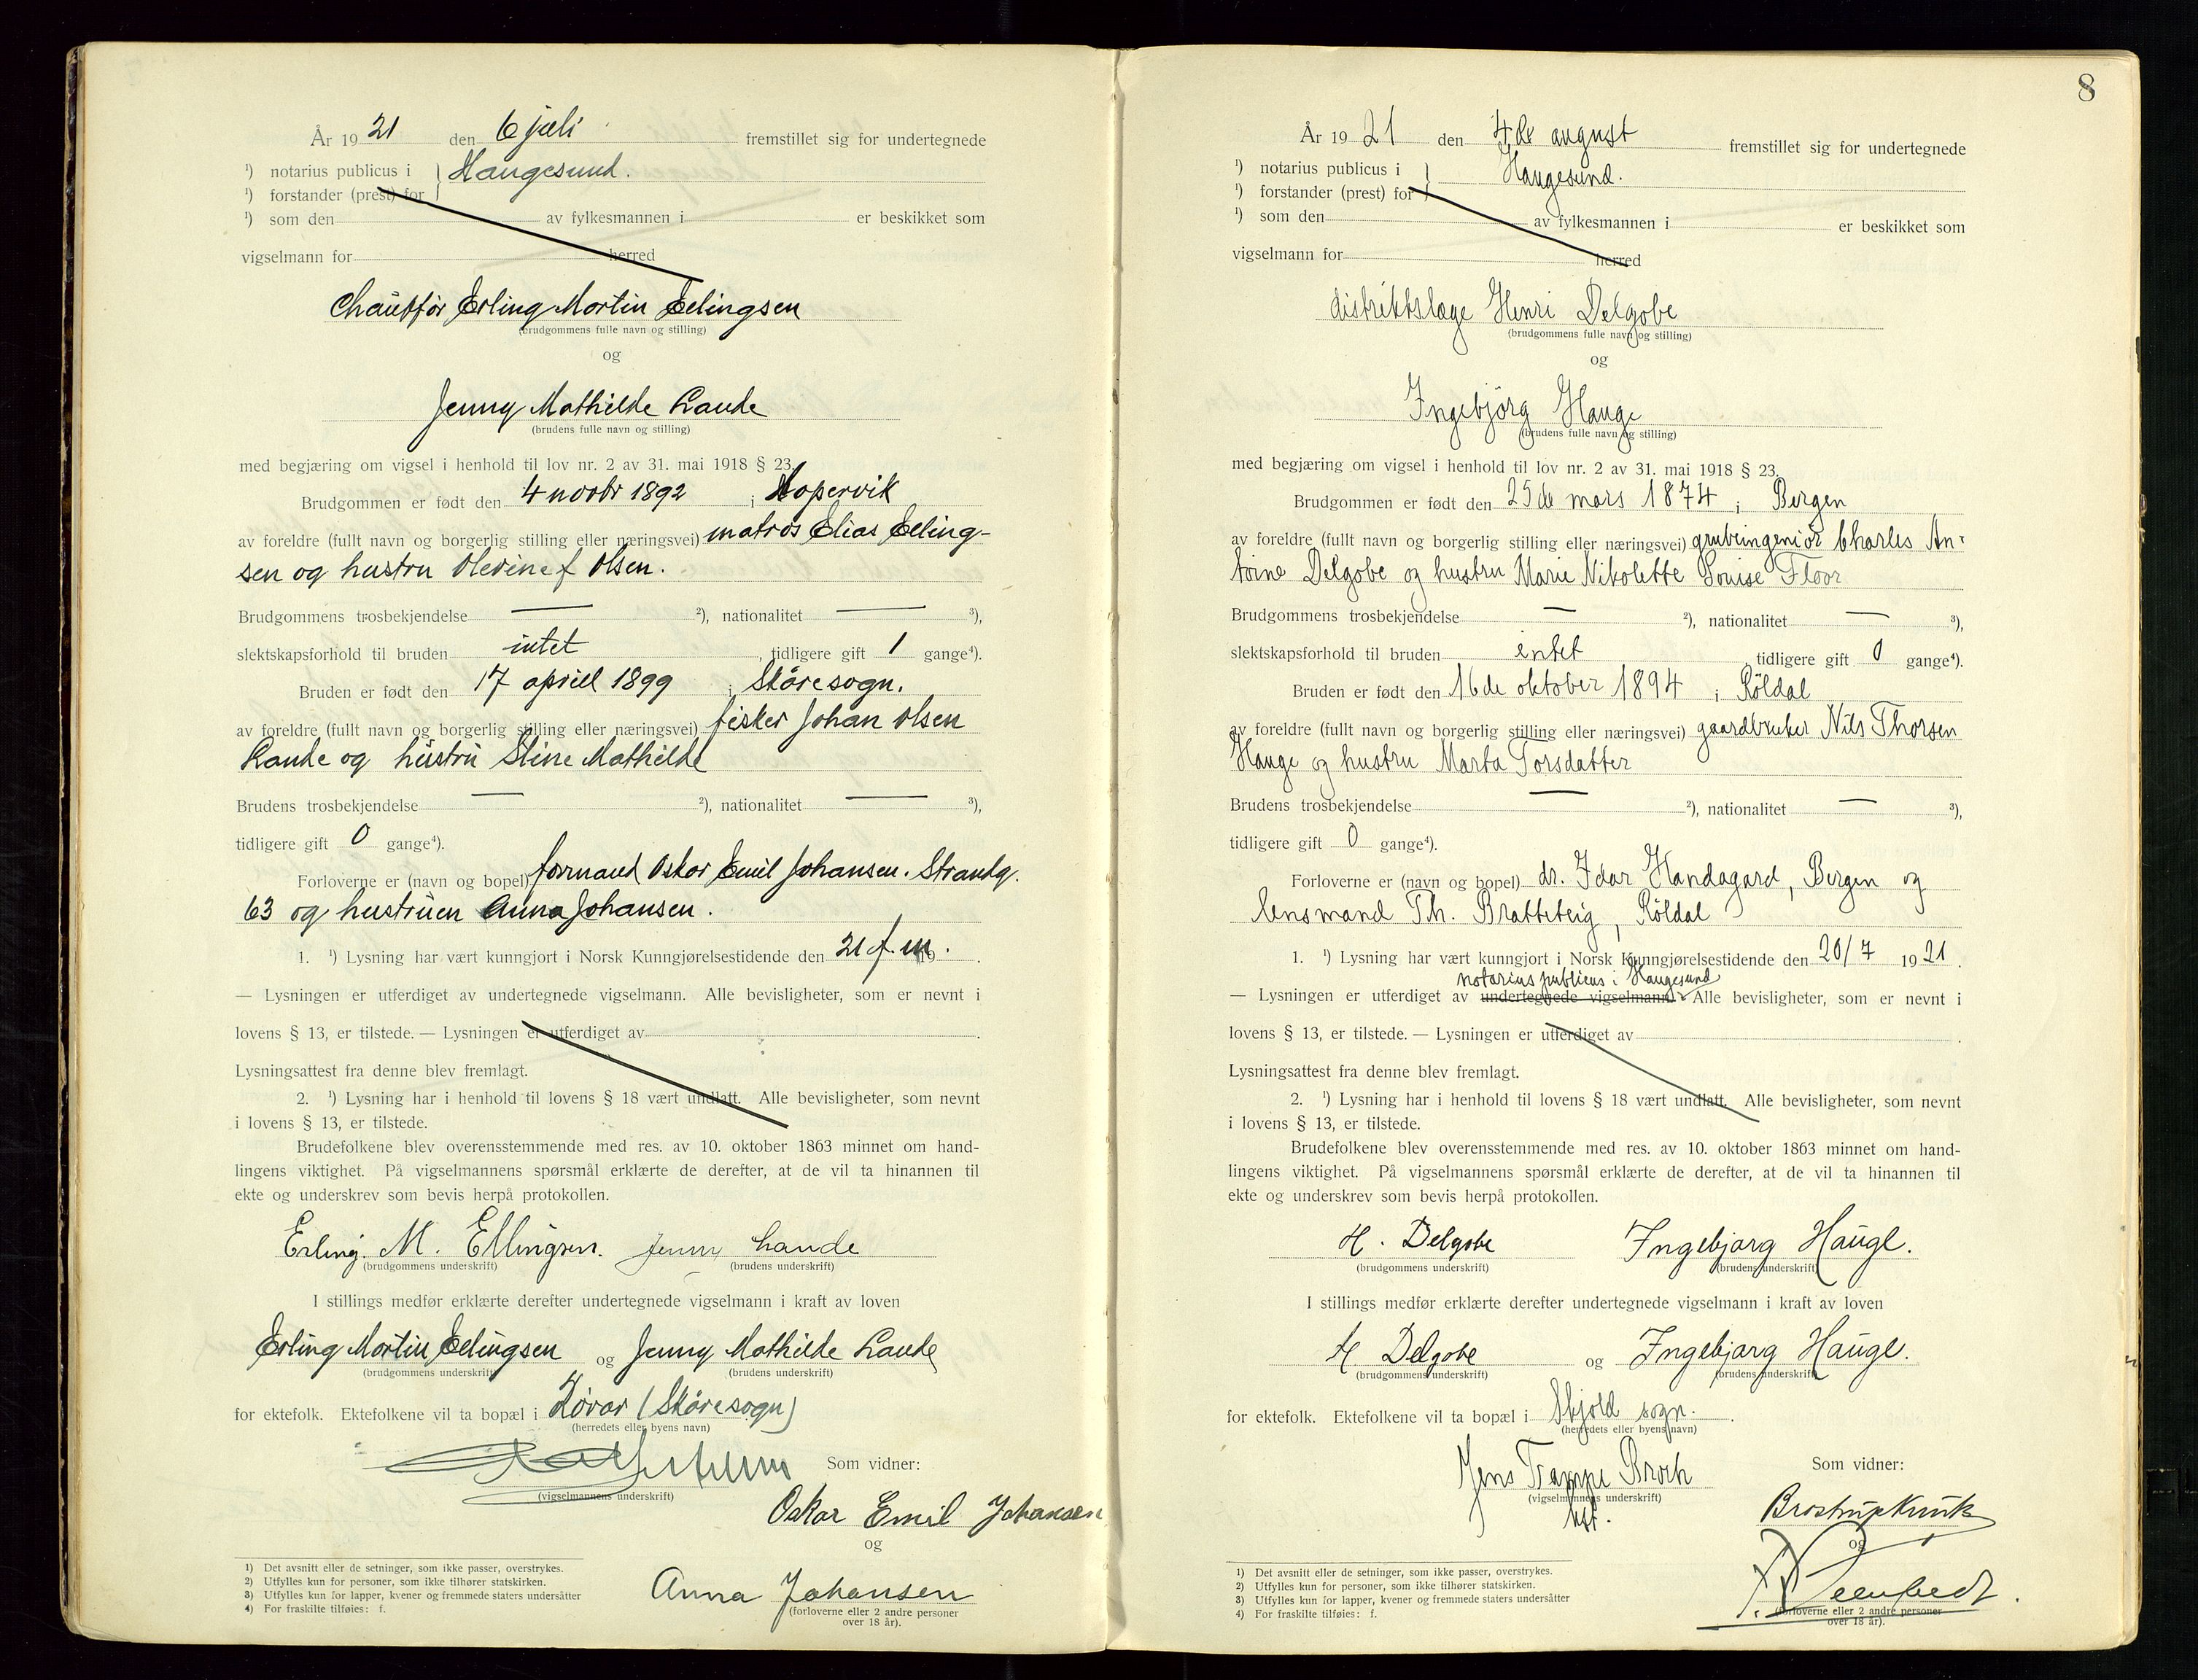 År 1921 den 6 juli fremstillet sig for undertegnede
¹) notarius publicus i } Haugesund.
¹) forstander (prest) for
¹) som den av fylkesmannen i er beskikket som
vigselmann for herred
Chauffør Erling Martin Ellingsen
(brudgommens fulle navn og stilling)
og
Jenny Mathilde Lande
(brudens fulle navn og stilling)
med begjæring om vigsel i henhold til lov nr. 2 av 31. mai 1918 § 23.
Brudgommen er født den 4 novbr 1892 i Kopervik
av foreldre (fullt navn og borgerlig stilling eller næringsvei) matros Elias Elling-
sen og hustru Olevine f Olsen.
Brudgommens trosbekjendelse — ²), nationalitet — ³),
slektskapsforhold til bruden intet, tidligere gift 1 gange⁴).
Bruden er født den 17 april 1899 i Skåresogn.
av foreldre (fullt navn og borgerlig stilling eller næringsvei) fisker Johan Olsen
Lande og hustru Stine Mathilde
Brudens trosbekjendelse — ²), nationalitet — ³),
tidligere gift 0 gange⁴).
Forloverne er (navn og bopel) formand Oskar Emil Johansen. Strandg.
63 og hustruen Anna Johansen.
1. ¹) Lysning har vært kunngjort i Norsk Kunngjørelsestidende den 21 f. m. 19
— Lysningen er utferdiget av undertegnede vigselmann. Alle bevisligheter, som er nevnt i
lovens § 13, er tilstede. — Lysningen er utferdiget av
Lysningsattest fra denne blev fremlagt.
2. ¹) Lysning har i henhold til lovens § 18 vært undlatt. Alle bevisligheter, som nevnt
i lovens § 13, er tilstede.
Brudefolkene blev overensstemmende med res. av 10. oktober 1863 minnet om hand-
lingens viktighet. På vigselmannens spørsmål erklærte de derefter, at de vil ta hinannen til
ekte og underskrev som bevis herpå protokollen.
Erling. M. Ellingsen. Jenny Lande
(brudgommens underskrift) (brudens underskrift)
I stillings medfør erklærte derefter undertegnede vigselmann i kraft av loven
Erling Martin Ellingsen og Jenny Mathilde Lande
(brudgommens underskrift) (brudens underskrift)
for ektefolk. Ektefolkene vil ta bopæl i Røvær (Skåresogn)
(herredets eller byens navn)
Som vidner:
(vigselmannens underskrift)
Oskar Emil Johansen
og
Anna Johansen
(forloverne eller 2 andre personer
over 18 år).
1) Det avsnitt eller de setninger, som ikke passer, overstrykes.
2) Utfylles kun for personer, som ikke tilhører statskirken.
3) Utfylles kun for lapper, kvener og fremmede staters undersåtter
4) For fraskilte tilføies: f.
8
År 1921 den 4de august fremstillet sig for undertegnede
¹) notarius publicus i } Haugesund.
¹) forstander (prest) for
¹) som den av fylkesmannen i er beskikket som
vigselmann for herred
distriktslæge Henri Delgobe
(brudgommens fulle navn og stilling)
og
Ingebjörg Hauge
(brudens fulle navn og stilling)
med begjæring om vigsel i henhold til lov nr. 2 av 31. mai 1918 § 23.
Brudgommen er født den 25de mars 1874 i Bergen
av foreldre (fullt navn og borgerlig stilling eller næringsvei) grubeingeniör Charles An-
toine Delgobe og hustru Marie Nikolette Louise Floor
Brudgommens trosbekjendelse — ²), nationalitet — ³),
slektskapsforhold til bruden intet tidligere gift 0 gange⁴).
Bruden er født den 16de oktober 1894 i Röldal
av foreldre (fullt navn og borgerlig stilling eller næringsvei) gaardbruker Nils Thorsen
Hauge og hustru Marta Torsdatter
Brudens trosbekjendelse — ²), nationalitet — ³),
tidligere gift 0 gange⁴).
Forloverne er (navn og bopel) dr. Idar Handagard, Bergen og
lensmand Th. Bratteteig, Röldal
1. ¹) Lysning har vært kunngjort i Norsk Kunngjørelsestidende den 20/7 1921.
notarius publicus i Haugesund
— Lysningen er utferdiget av undertegnede vigselmann. Alle bevisligheter, som er nevnt i
lovens § 13, er tilstede. — Lysningen er utferdiget av
Lysningsattest fra denne blev fremlagt.
2. ¹) Lysning har i henhold til lovens § 18 vært undlatt. Alle bevisligheter, som nevnt
i lovens § 13, er tilstede.
Brudefolkene blev overensstemmende med res. av 10. oktober 1863 minnet om hand-
lingens viktighet. På vigselmannens spørsmål erklærte de derefter, at de vil ta hinannen til
ekte og underskrev som bevis herpå protokollen.
H. Delgobe Ingebjørg Hauge.
(brudgommens underskrift) (brudens underskrift)
I stillings medfør erklærte derefter undertegnede vigselmann i kraft av loven
H Delgobe og Ingebjørg Hauge.
(brudgommens underskrift) (brudens underskrift)
for ektefolk. Ektefolkene vil ta bopæl i Skjold sogn.
(herredets eller byens navn)
Jens Trampe Broch Som vidner:
(vigselmannens underskrift)
kst.
og
(forloverne eller 2 andre personer
over 18 år).
1) Det avsnitt eller de setninger, som ikke passer, overstrykes.
2) Utfylles kun for personer, som ikke tilhører statskirken.
3) Utfylles kun for lapper, kvener og fremmede staters undersåtter
4) For fraskilte tilføies: f.